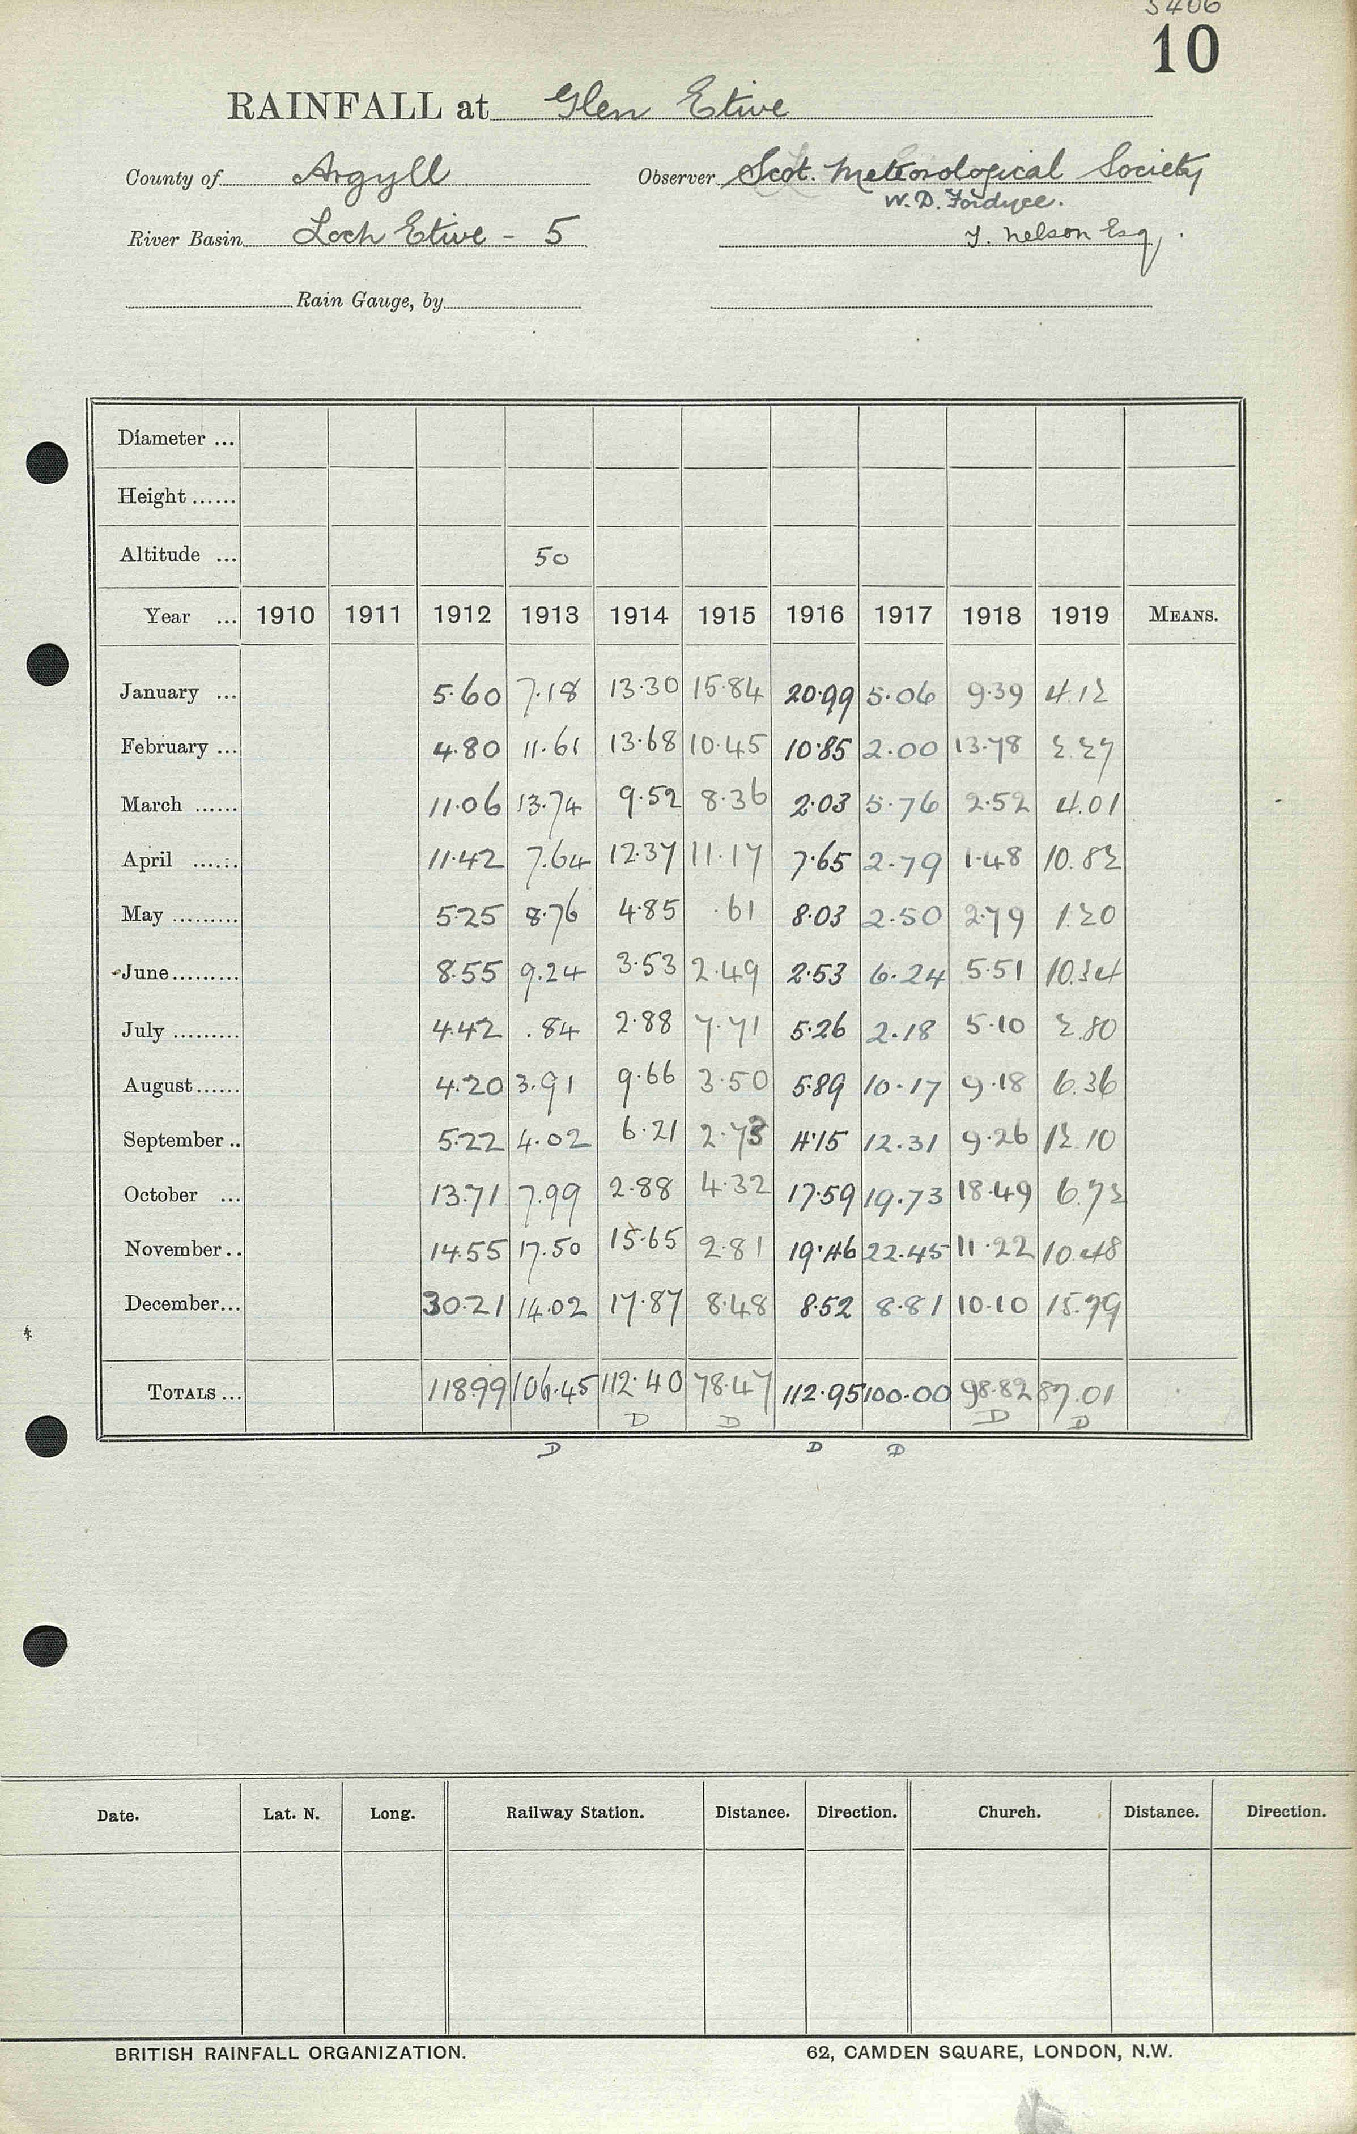 5406
10
RAINFALL at Glen Etive
County of Argyll Observer Scot. Meteorological Society
W. D. Fordyce.
River Basin Loch Etive - 5 T. Nelson Esq.
Rain Gauge, by
Diameter ...
Height ......
Altitude ... 50
Year ... 1910 1911 1912 1913 1914 1915 1916 1917 1918 1919 MEANS.
January ... 5.60 7.18 13.30 15.84 20.99 5.06 9.39 4.12
February ... 4.80 11.61 13.68 10.45 10.85 2.00 13.78 2.27
March ...... 11.06 13.74 9.52 8.36 2.03 5.76 2.52 4.01
April ...... 11.42 7.64 12.37 11.17 7.65 2.79 1.48 10.82
May ......... 5.25 8.76 4.85 .61 8.03 2.50 2.79 1.20
June......... 8.55 9.24 3.53 2.49 2.53 6.24 5.51 10.34
July ......... 4.42 .84 2.88 7.71 5.26 2.18 5.10 2.80
August...... 4.20 3.91 9.66 3.50 5.89 10.17 9.18 6.36
September .. 5.22 4.02 6.21 2.73 4.15 12.31 9.26 12.10
October ... 13.71 7.99 2.88 4.32 17.59 19.73 18.49 6.72
November .. 14.55 17.50 15.65 2.81 19.46 22.45 11.22 10.48
December... 30.21 14.02 17.87 8.48 8.52 8.81 10.10 15.79
TOTALS ... 118.99 106.45 112.40 78.47 112.95 100.00 98.82 87.01
D D D D
D D D
Date. Lat. N. Long. Railway Station. Distance. Direction. Church. Distance. Direction.
BRITISH RAINFALL ORGANIZATION. 62, CAMDEN SQUARE, LONDON, N.W.